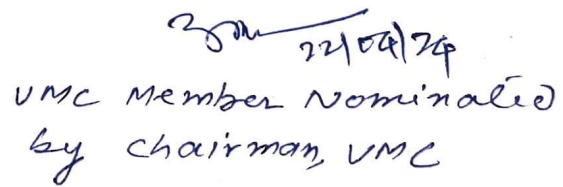 22/04/24
VMC Member Nominated
by Chairman, VMC